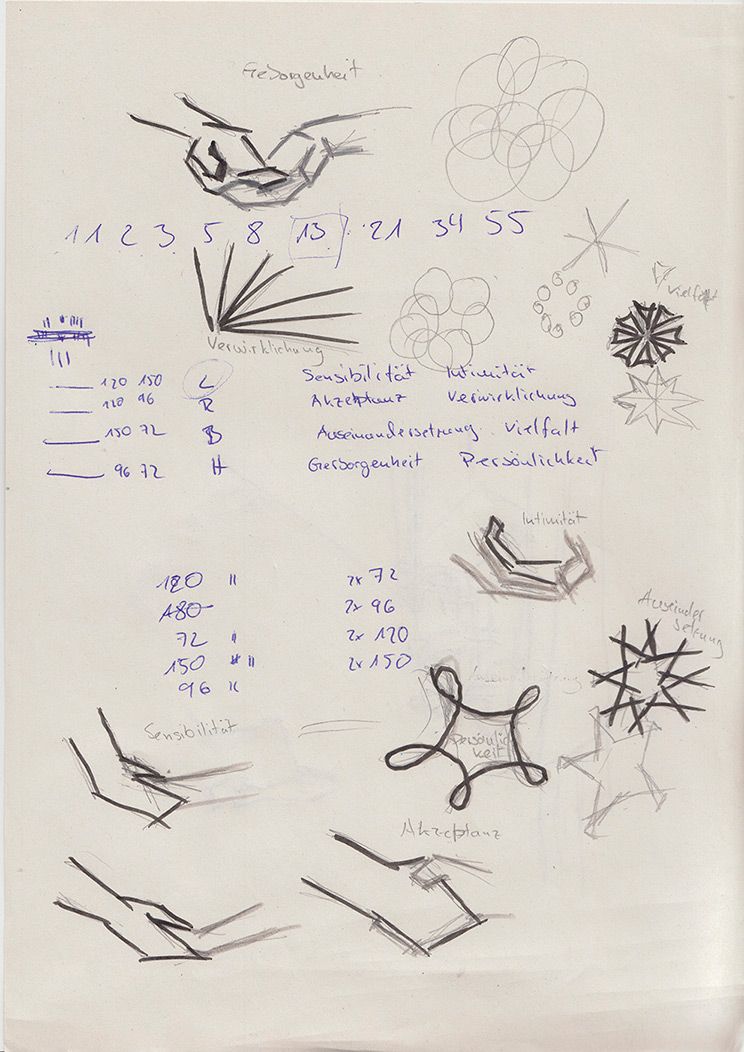 Geborgenheit
1 1 2 3 5 8 13 21 34 55
Vielfalt
Verwirklichung
120 150 L Sensibilität Intimität
120 96 R Akzeptanz Verwirklichung
150 72 B Auseinandersetzung Vielfalt
96 72 H Gerborgenheit Persönlichkeit
Intimität
120 " 2x 72
180 2x 96
72 " 2x 120
150 " 2x 150
96 "
Auseinder
setzung
Sensibilität
Persönlich
keit
Akzeptanz